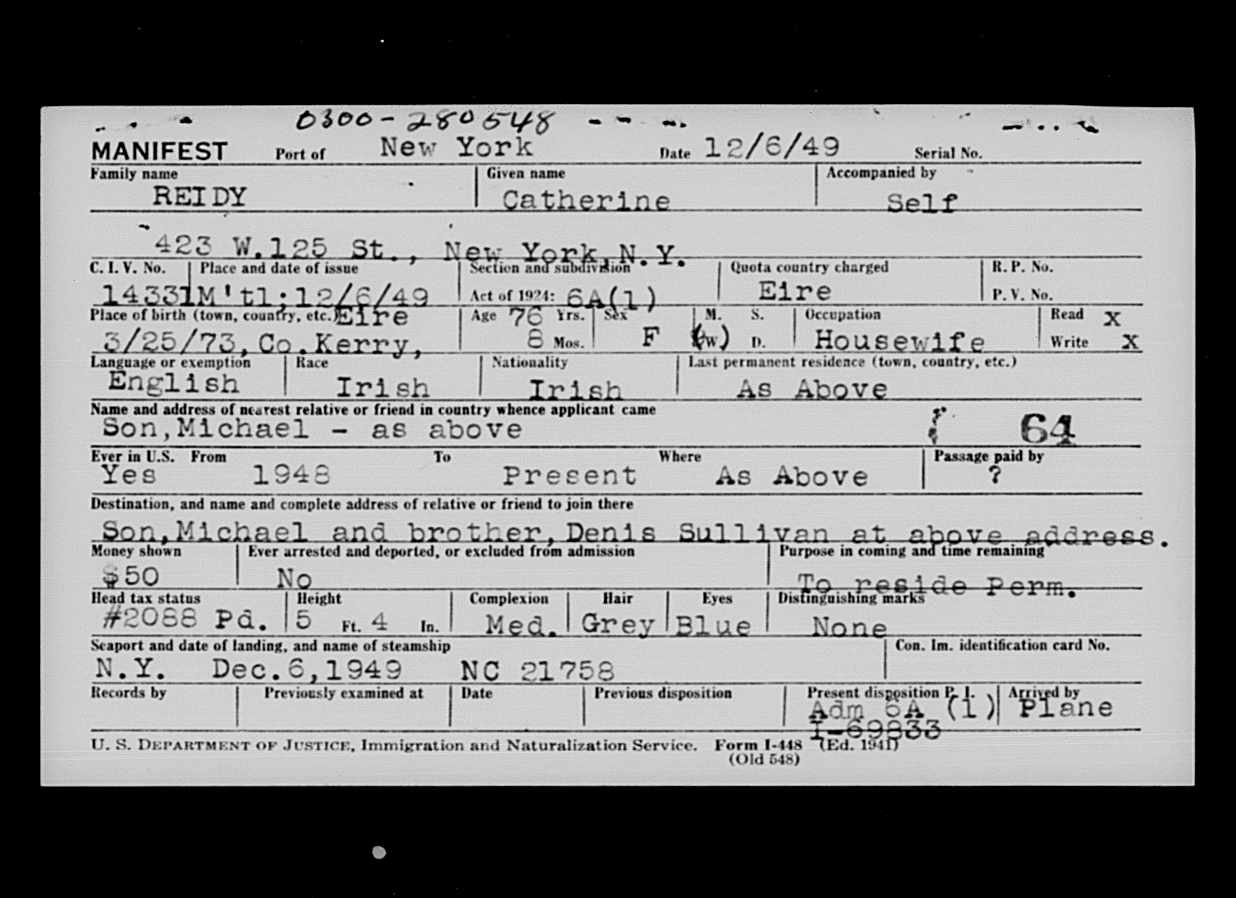 0300-280548
MANIFEST Port of New York Date 12/6/49 Serial No.
Family name Given name Accompanied by
REIDY Catherine Self
423 W.125 St., New York,N.Y.
C. I. V. No. Place and date of issue Section and subdivision Quota country charged R. P. No.
14331 M'tl:12/6/49 Act of 1924: 6A(1) Eire P. V. No.
Place of birth (town, country, etc.) Eire Age 76 Yrs. Sex M. S. Occupation Read X
3/25/73, Co.Kerry, 8 Mos. F (W) D. Housewife Write X
Language or exemption Race Nationality Last permanent residence (town, country, etc.)
English Irish Irish As Above
Name and address of nearest relative or friend in country whence applicant came
Son,Michael - as above 64
Ever in U.S. From To Where Passage paid by
Yes 1948 Present As Above ?
Destination, and name and complete address of relative or friend to join there
Son,Michael and brother,Denis Sullivan at above address.
Money shown Ever arrested and deported, or excluded from admission Purpose in coming and time remaining
$50 No To reside Perm.
Head tax status Height Complexion Hair Eyes Distinguishing marks
#2088 Pd. 5 Ft. 4 In. Med. Grey Blue None
Seaport and date of landing, and name of steamship Con. Im. identification card No.
N.Y. Dec.6,1949 NC 21758
Records by Previously examined at Date Previous disposition Present disposition P. I. Arrived by
Adm 6A (1) Plane
I-69833
U. S. DEPARTMENT OF JUSTICE, Immigration and Naturalization Service. Form I-448 (Ed. 1941)
(Old 548)